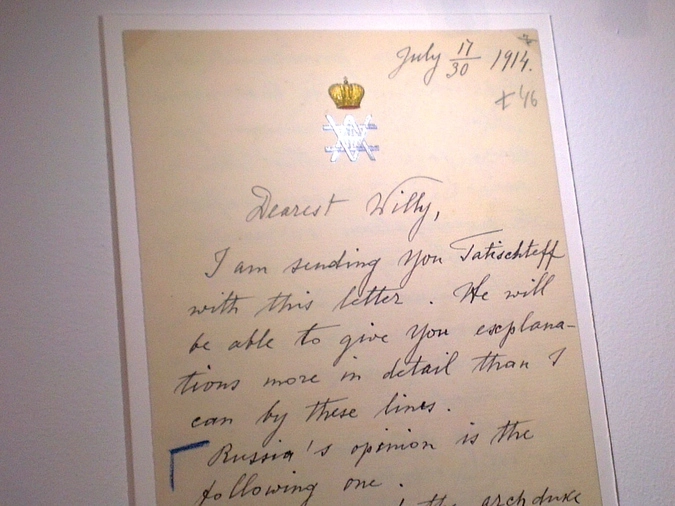 July 17/30 1914.
46
Dearest Willy,
I am sending you Tatischteff
with this letter. He will
be able to give you explana-
tions more in detail than I
can by these lines.
Russia's opinion is the
following one.
the archduke